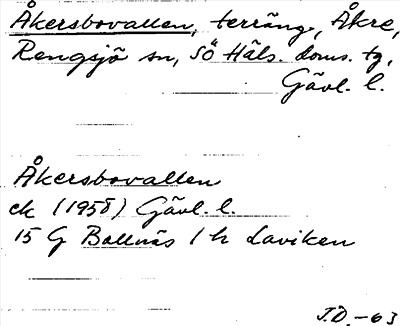 Åkersbovallen, terräng, Åkre,
Rengsjö sn, SÖ Häls. doms. tg,
Gävl. l.
Åkersbovallen
ek (1958) Gävl. l.
15 G Bollnäs 1 h Laviken
J.D.-63